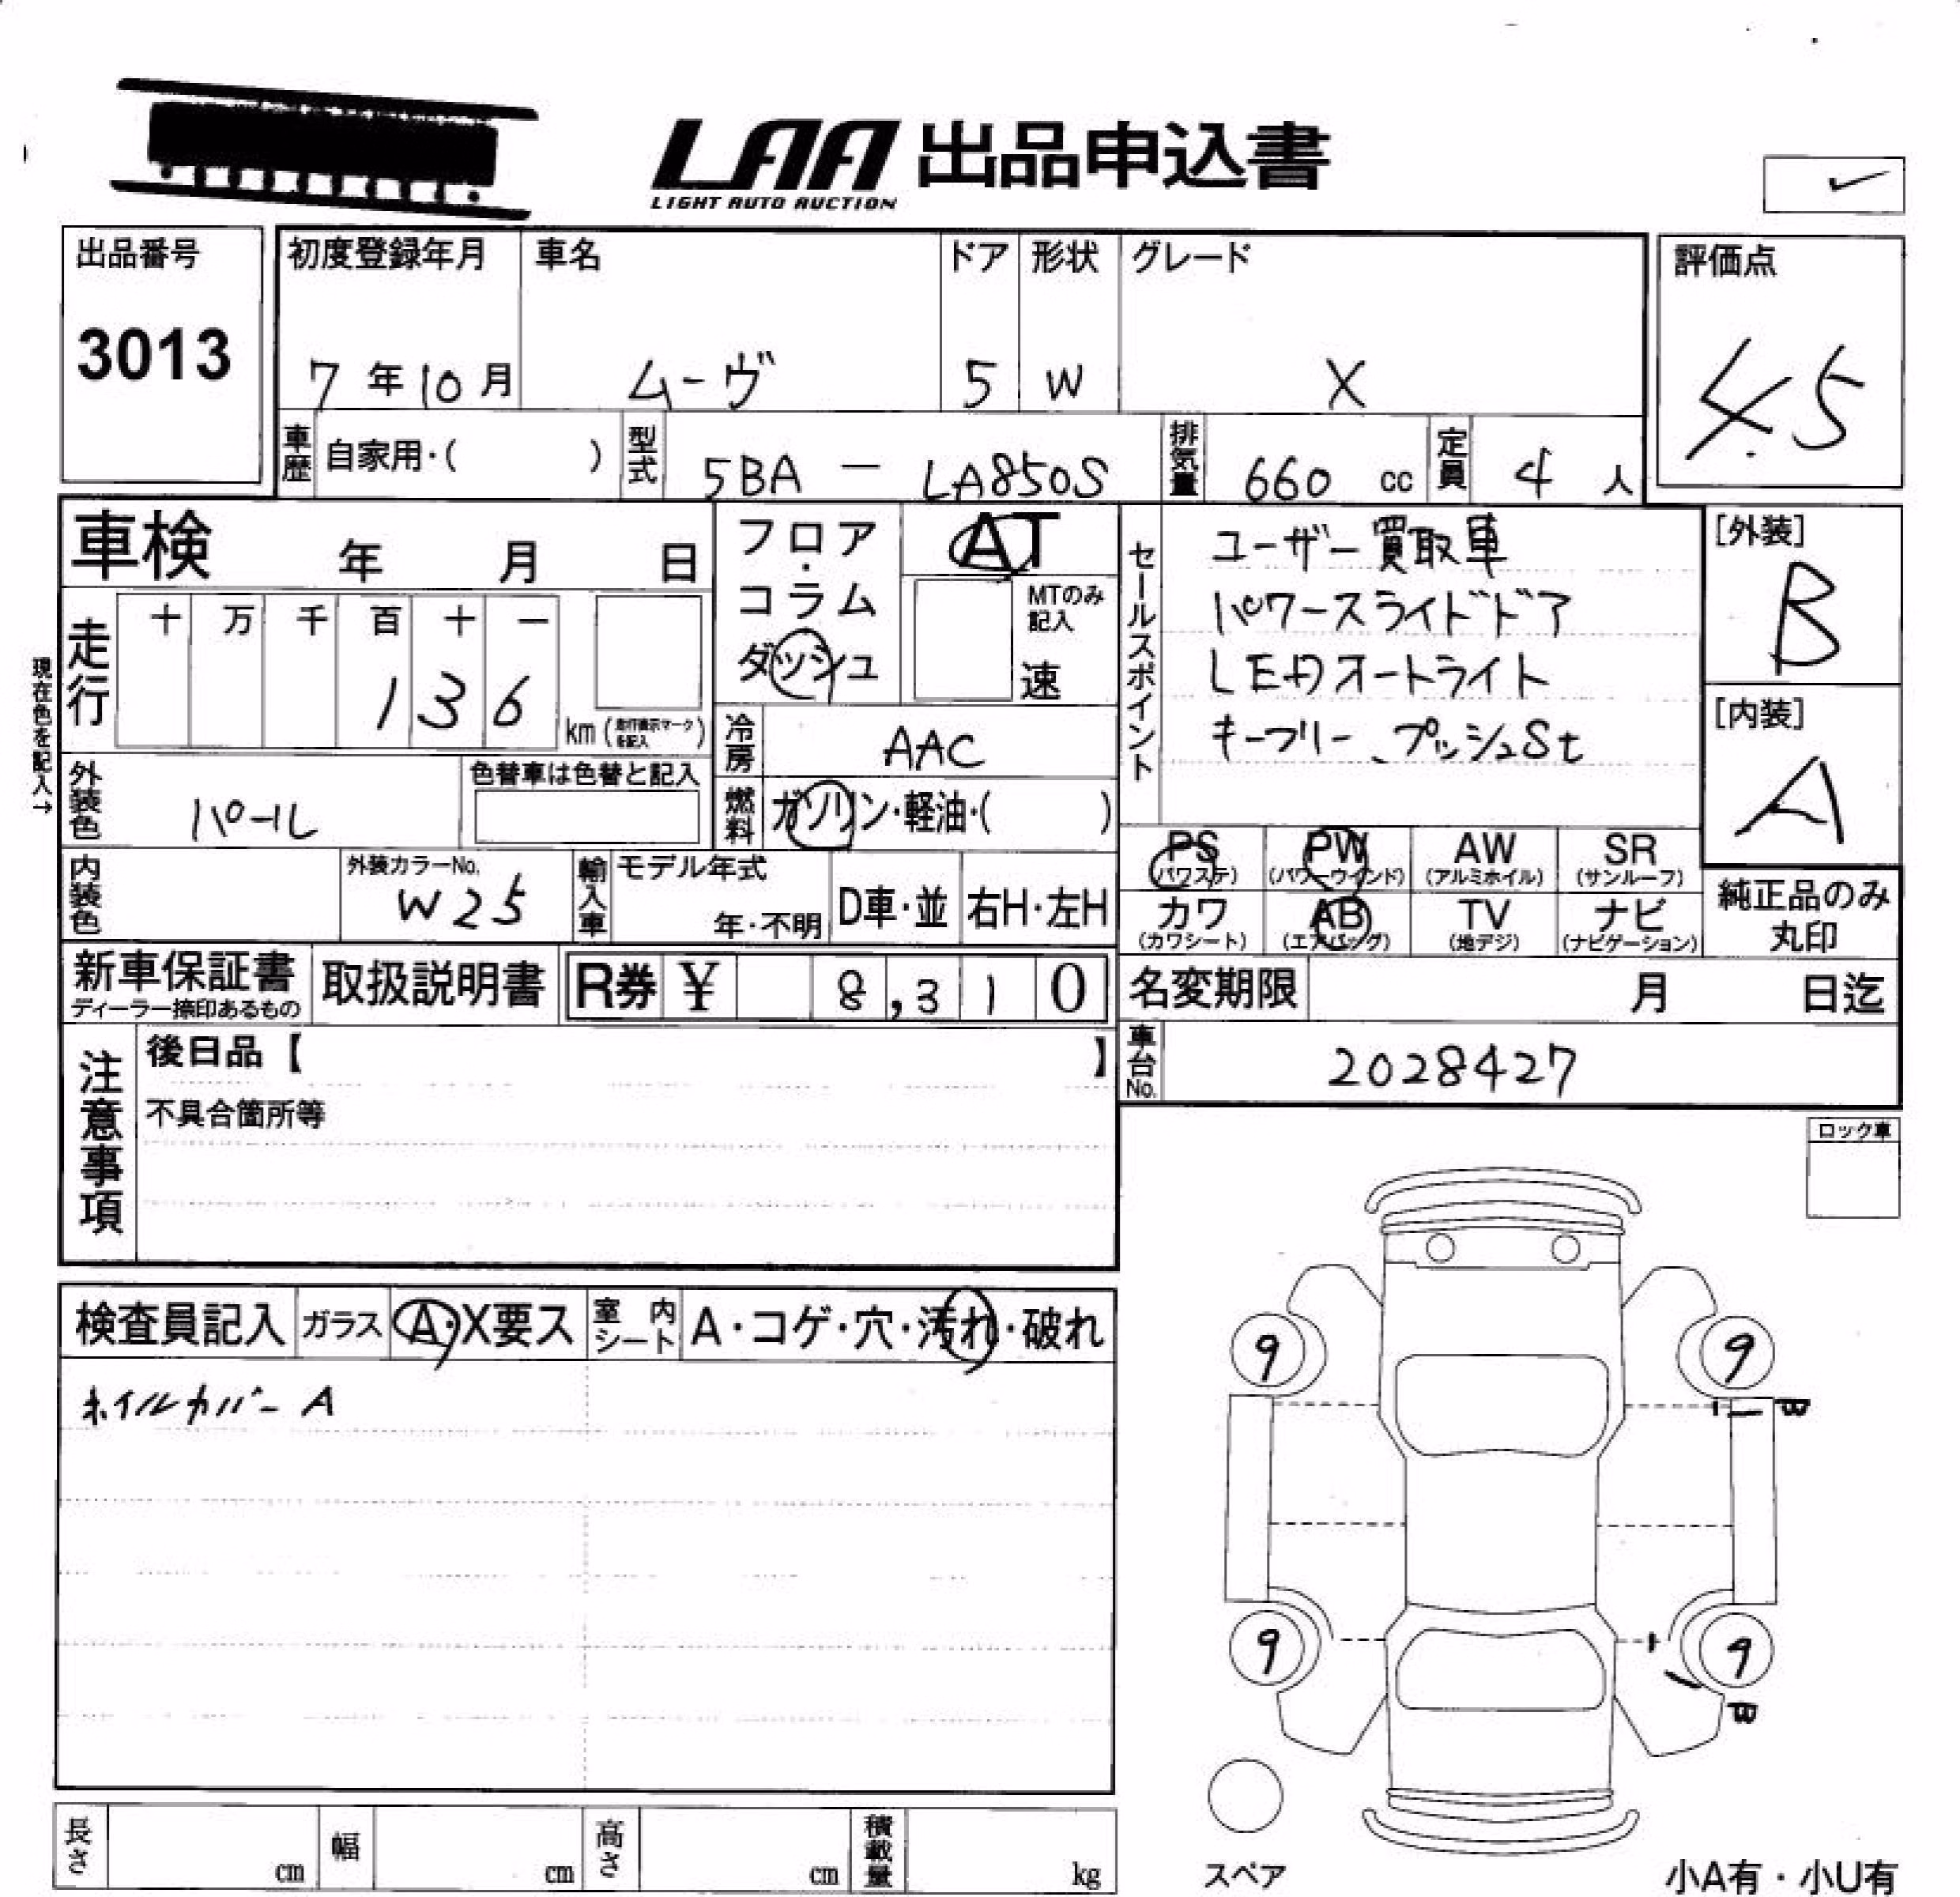 LAA 出品申込書
LIGHT AUTO AUCTION
出品番号
3013
初度登録年月
7年10月
車名
ムーヴ
ドア
5
形状
W
グレード
X
評価点
4.5
車歴 自家用・( )
型式 5BA － LA850S
排気量 660 cc
定員 4 人
車検 年 月 日
フロア・コラム ダッシュ
AT
MTのみ記入
速
現在色を記入→
走行
十 万 千 百 十 一
136
km
冷房 AAC
燃料 ガソリン・軽油・( )
外装色 パール
色替車は色替と記入
内装色
外装カラーNo.
W25
輸入車 モデル年式
年・不明
D車・並
右H・左H
セールスポイント
ユーザー買取車
パワースライドドア
LEDオートライト
キーフリー、プッシュSt
[外装]
B
[内装]
A
PS (パワステ)
PW (パワーウインド)
AW (アルミホイル)
SR (サンルーフ)
カワ (カワシート)
AB (エアバッグ)
TV (地デジ)
ナビ (ナビゲーション)
純正品のみ
丸印
新車保証書
ディーラー捺印あるもの
取扱説明書
R券 ¥ 8,310
名変期限 月 日迄
車台No. 2028427
注意事項
後日品【 】
不具合箇所等
ロック車
検査員記入
ガラス A・X要ス
室内シート A・コゲ・穴・汚れ・破れ
ホイルカバーA
9
9
B
9
9
B
スペア
小A有・小U有
長さ cm
幅 cm
高さ cm
積載量 kg